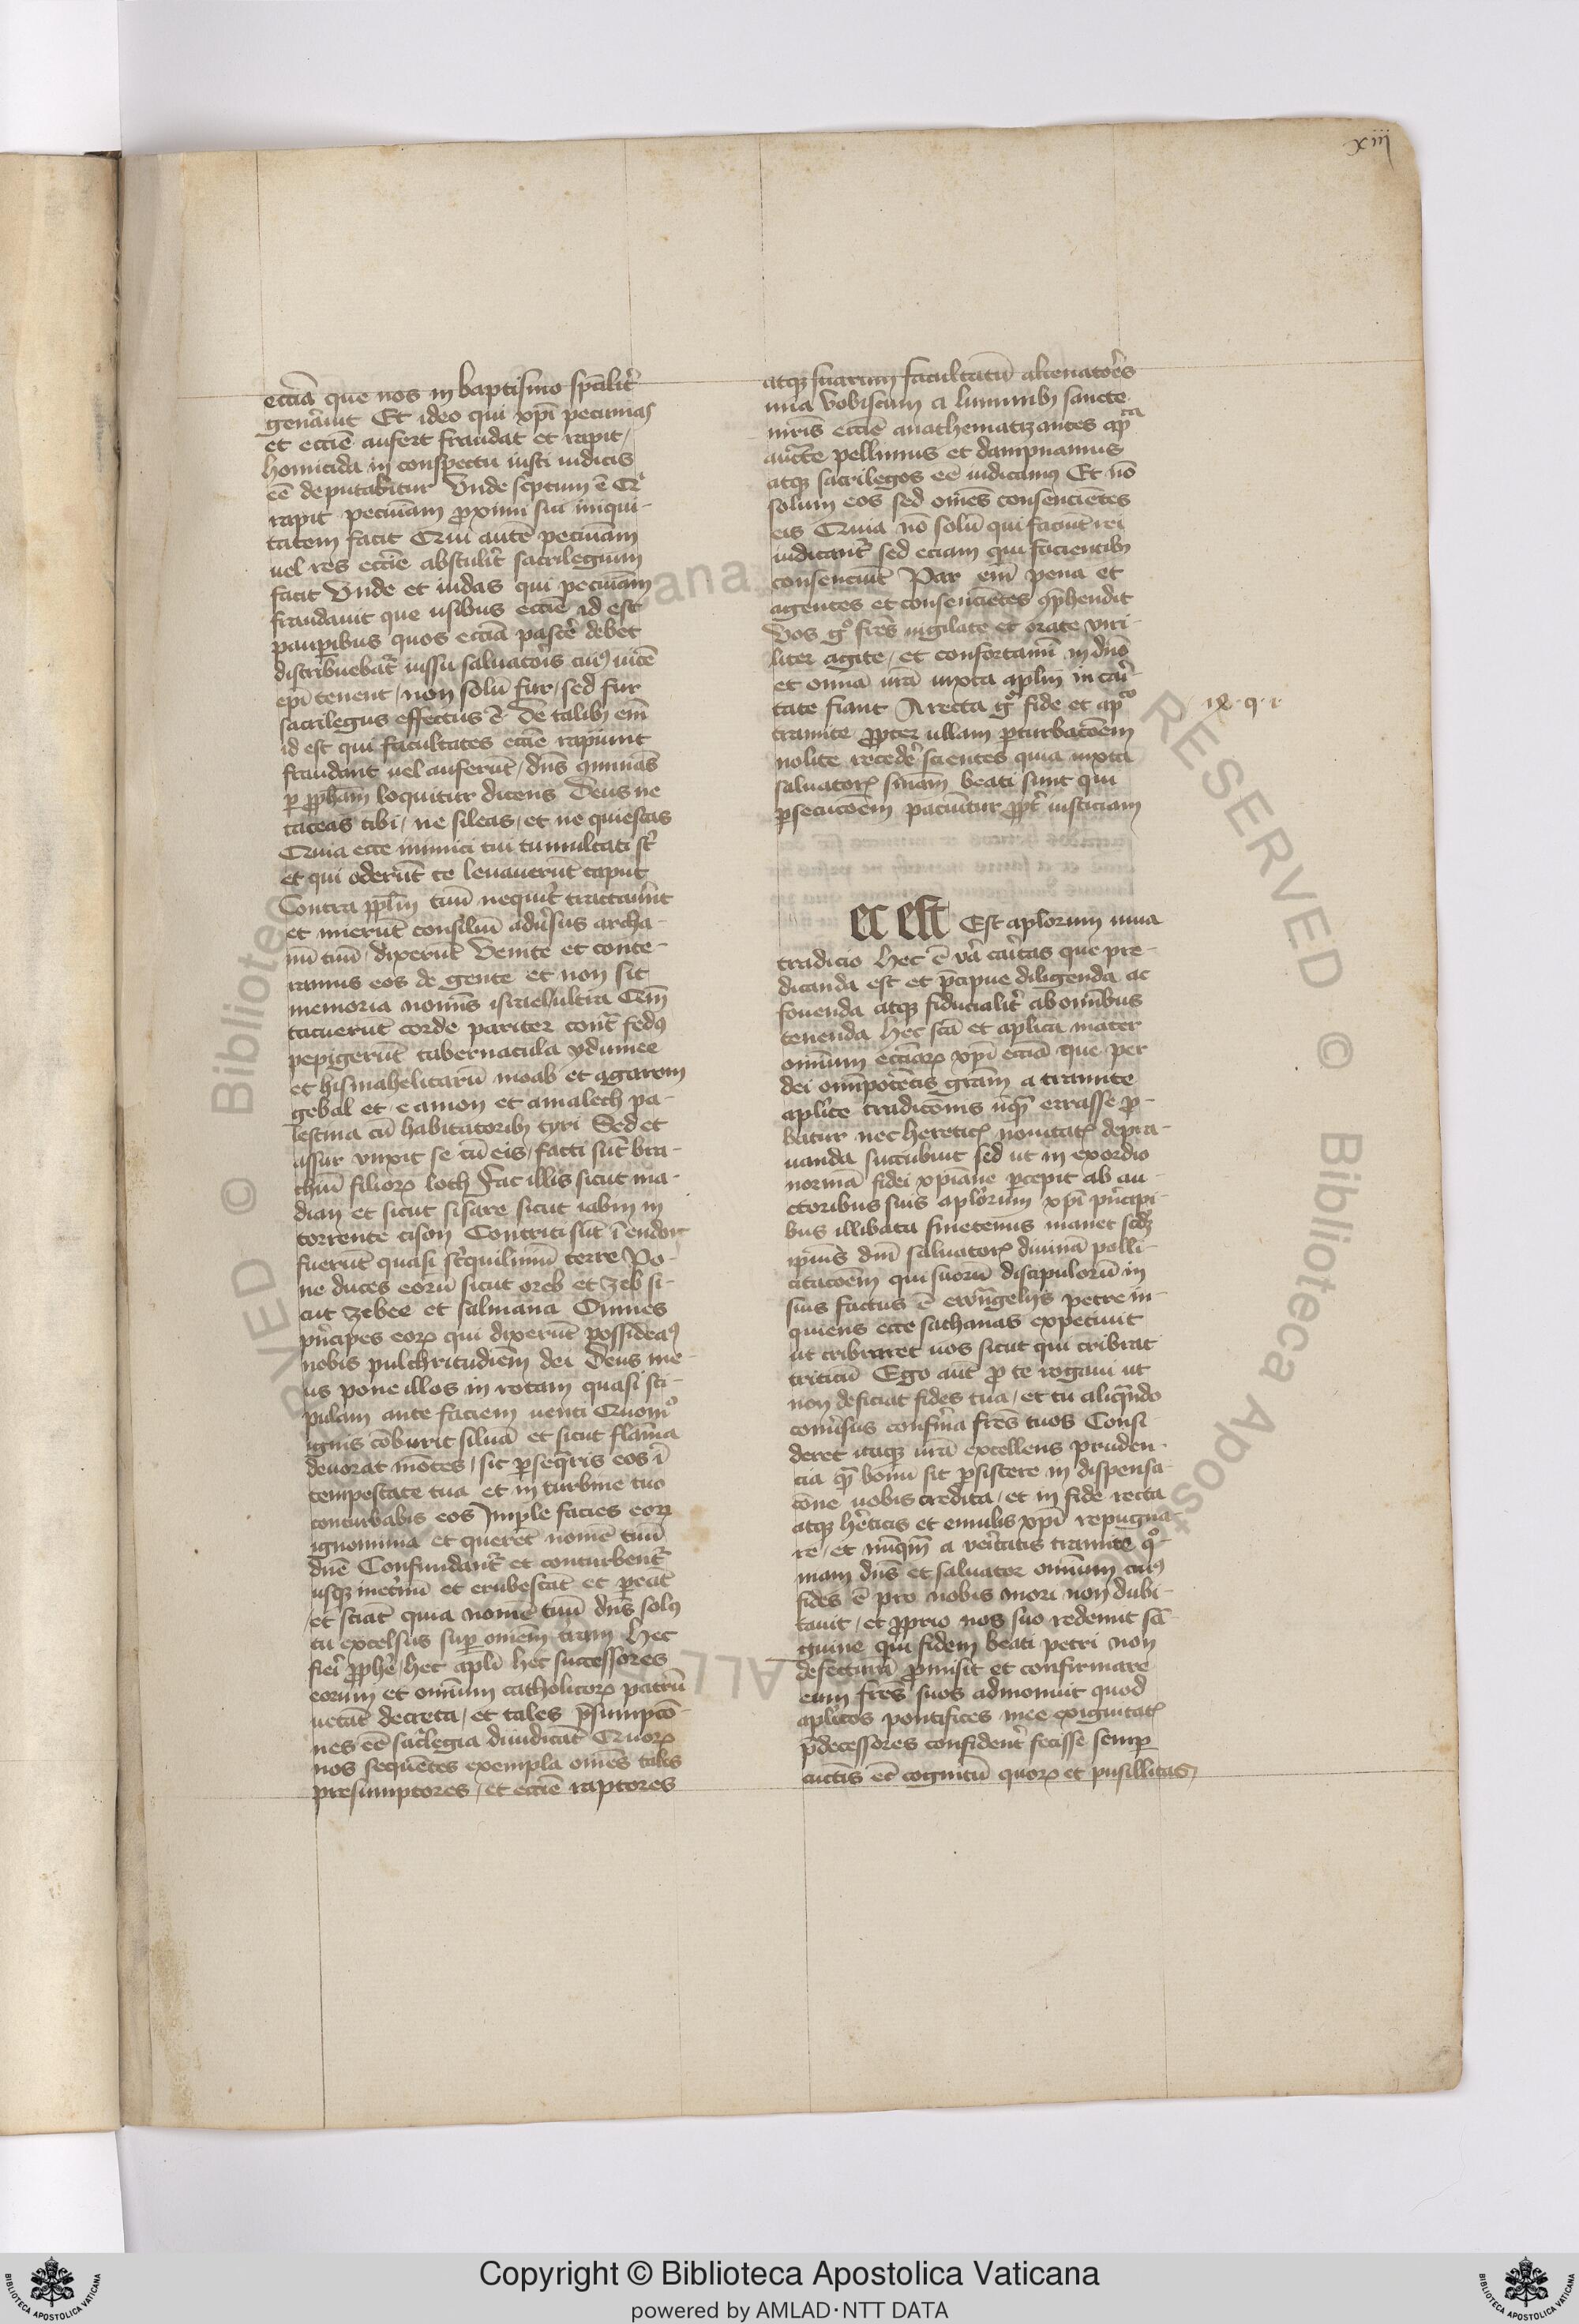 xiij
ecciā que nos in baptismo spālit᷑
gen̄auit Et ideo qui xp̄i pecunias
et eccīe aufert fraudat et rapit /
homicida in conspectu iusti iudicis
eē deputabitur Vnde scptum ē Qͥ
rapit pecuniam ꝓximi sui iniqui-
tatem facit Qui autē pecuniam
uel res eccīe abstulit᷑ sacrilegium
facit Vnde et iudas qui pecuniam
fraudauit que usibus eccīe id est
paup̄ibus quos ecciā pascē debet
distribuebat᷑ iussu saluatoīs cuiꝰ uicē
ep̄i tenent / non solū fur / sed fur
sacrilegus effectus ē De talibꝫ em̄
id est qui facultates eccīe rapiunt
fraudānt uel auferūt / dn̄s
ꝑ ꝓph̄am loquitur dicens Deus ne
taceas tibi / ne sileas / et ne quiescas
Quia ecce inimici tui tumultati sῑ
et qui oderūt te leuauerūt caput
Contra ppl̄m tuū nequit᷑ tractauērt
et inierūt consiliū adūsus archa-
nū tuū / dixerūt Venite et conte-
ramus eos de gente et non sit
memoria nomīs israel ultra Qm̄
tacuerūt corde pariter cont̄ fedꝰ
pepigerūt tabernacula ydumee
et hismahelitarū moab et agareni
gebal et e amon et amalech pa-
lestina cū habitatoribꝫ tyri Sed et
assur vnxit se cū eis / facti sūt bra-
chiū filioꝝ loth Fac illis sicut ma-
dian et sicut sisare sicut iabin in
torrente cison Contriti sūt ī endor
fuerūt quasi st᷑quiliniū terre Po-
ne duces eorū sicut oreb et zeb si-
cut zebee et salmana Omnes
pn̄cipes eoꝝ qui dixerūt possideaꝰ
nobis pulchritudiēm dei Deus me-
us pone illos in rotam quasi sti-
pulam ante faciem uenti Quomͦ
ignis cōburit siluā et sicut flāma
deuorat mōtes / sit ꝑseq̄ris eos ī
tempestate tua et in turbine tuo
conturbabis eos Imple facies eoꝝ
ignominia et querēt nomē tuū
dn̄e Confundant᷑ et conturbent᷑
usqꝫ inet᷑nū et erubescāt et ꝑeāt
et sciāt quia nomē tuū dn̄s solꝰ
tu excelsus sup̄ omēm tram Hec
fieī ꝓphe / hec apl̄i hec successores
eorum et omnium catholicoꝝ patrū
uetāt decreta / et tales p̄sumpcō-
nes eē sacͥlegia diiudicāt Quoꝝ
nos sequētes exempla omēs tales
presumptores / et eccīe raptores
atqꝫ suarum facultatū alienatoēs
una vobiscum a liminibꝫ sancte
mr̄is eccīe anathematizantes apᶜᵃ
auctt̄e pellimus et dampnamus
atqꝫ sacrilegos eē iudicamꝰ Et nō
solum eos sed omēs consencientes
eis Quia nō solū qui faciunt rei
iudicant᷑ sed eciam qui facientibꝫ
consenciūt Par em̄ pena et
agentes et consencietes ꝯphendit
Vos gͦ fr̄es uigilate et orate viri-
liter agite / et confortam̄ī in dn̄o
et omīa urā iuxta apl̄m in caī-
tate fiant A recta gͦ fide et apᶜᵒ
tramite ꝓpter ullam ꝑturbacōem
nolite recedē scientes quia iuxta
saluatoꝝ sn̄iam beati sunt qui
ꝑsecucōem paciuntur ꝓpt᷑ iusticiam
ix · q · i
ec est Est aplorum uiua
tradicio Hec ē vā caītas que pre-
dicanda est et p̄cipue diligenda ac
fouenda atqꝫ fiducialit᷑ ab omībus
tenenda Hec scā et aplica mater
omnium ecciaꝝ xp̄i ecciā que per
dei omīpotētis grām a tramite
aplīce tradicōnis nūqͣ errasse ꝓ-
batur nec heretic̄ nouitat̄ depra-
uanda succubuit sed ut in exordio
normā fidei xpiane ꝑcepit ab au-
ctoribus suis aplorum xp̄i pn̄cipi-
bus illibata finetenus manet scdꝫ
ipsius dn̄i saluatoꝝ diuinā polli-
citacōem qui suorū discipulorū in
suis factus ē ewāgelijs petre in-
quiens ecce sathanas expetiuit
ut cribraret uos sicut qui cribrat
triticū Ego aut̄ ꝓ te rogaui ut
non deficiat fides tua / et tu aliqn̄do
conūsus confir̄ma fr̄es tuos Consi-
deret itaqꝫ urā excellens pruden-
cia qͣ bonū sit ꝑsistere in dispensa-
cōne uobis credita / et in fide recta
atqꝫ hēticis et emulis xp̄i repugna-
re / et nūqͣ a ueītatis tramite qͦ-
niam dn̄s et saluator omnium cuiꝰ
fides ē pro nobis mori non dubi-
tauit / et ꝓprio nos suo redemit sā-
guine qui fidem beati petri non
defecturā ꝓmisit et confirmare
eum fr̄es suos admonuit quod
aplīcos pontifices mee exiguitat̄
p̄decessores confident᷑ fecisse semꝑ
cūctis eē cognitū quoꝝ et pusillitas
Copyright © Biblioteca Apostolica Vaticana
powered by AMLAD·NTT DATA